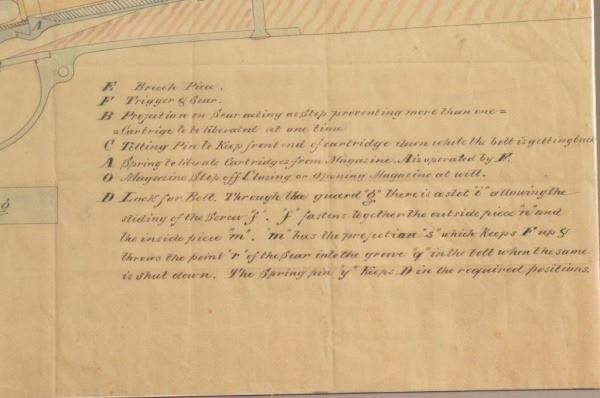 A
E Breech Piece.
F Trigger & Sear.
B Projection on Sear acting as stop preventing more than one =
= Cartrige to be liberated at one time
C Tilting Pin to Keep front end of cartridge down while the bolt is getting back
A Spring to liberate Cartridges from Magazine A is operated by F.
O Magazine Stop off Closing or Opening Magazine at will.
D Lock for Bolt. Through the guard "g" there is a slot "i" allowing the
sliding of the Screw "f". "f" fastens together the outside piece "n" and
the inside piece "m". "m" has the projection "s" which keeps F up &
throws the point "r" of the Sear into the grove "q" in the bolt when the same
is shut down. The Spring pin "y" Keeps D in the required positions.
g